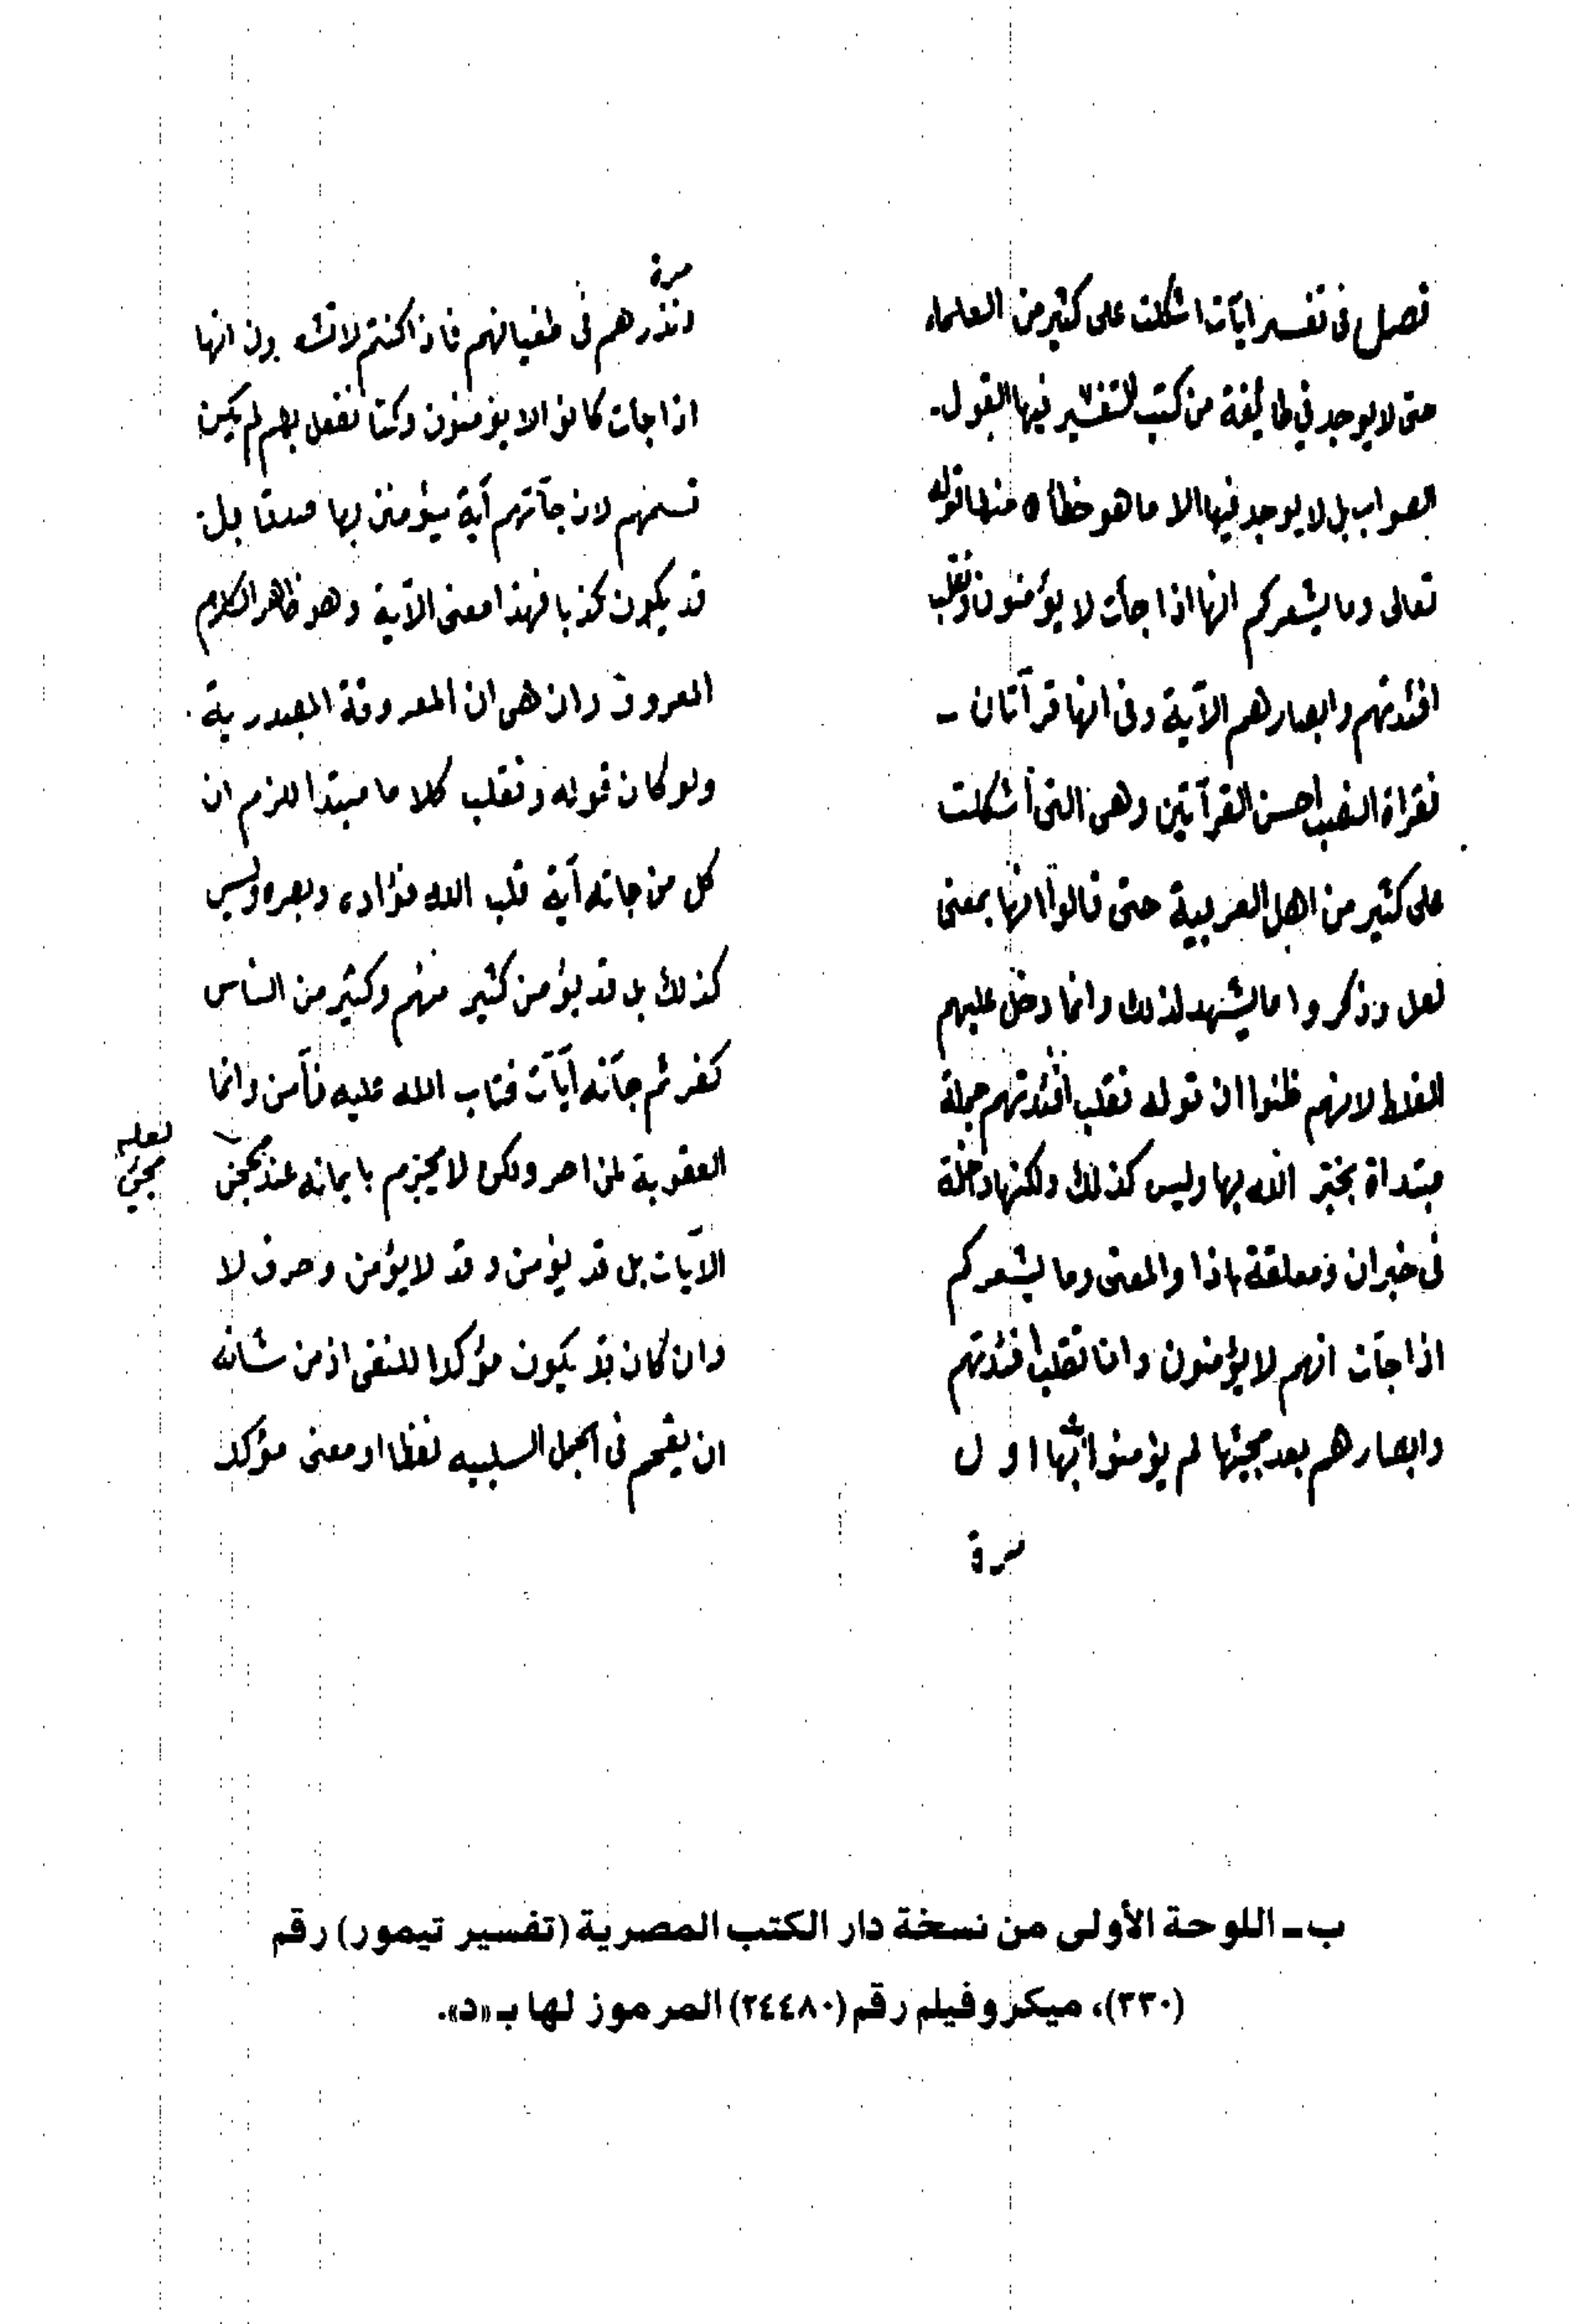 فصل فى تفسير ايآت اشكلت على كثير من العلماء
حتى لا يوجد في طايفة من كتب التفسير فيها القول
الصواب بل لا يوجد فيها الا ما هو خطأ ه منها قوله
تعالى وما يشعركم انها اذا جأت لا يؤمنون ونقلب
افئدتهم وابصارهم الآية وفى انها قرآتان
فقراة النصب احسن القرآتين وهى التى أشكلت
على كثير من اهل العربية حتى قالوا انها بمعنى
لعل وذكروا ما يشهد لذلك وانما دخل عليهم
الغلط لانهم ظنوا ان قوله نقلب افئدتهم جملة
مبتداة يخبر الله بها وليس كذلك ولكنها داخلة
فى خبر ان ومعلقة باذا والمعنى وما يشعركم
اذا جآت انهم لا يؤمنون وانا نقلب افئدتهم
وابصارهم بعد مجيئها لم يؤمنوا بها اول
مرة
مرة
ونذرهم فى طغيانهم فاذا كنتم لا تشعرون انها
اذا جات كانوا لا يؤمنون وكنا نفعل بهم لم يكن
قسمهم لان جآتهم آية ليؤمنن بها صدقا بل
قد يكون كذبا فهذا معنى الآية وهو ظاهر الكلام
المعروف وان هى ان المعروفة المصدرية
ولو كان قوله ونقلب كلاما مبتدا للزم ان
كل من جاته آية قلب الله فؤاده وبصره وليس
كذلك بل قد يؤمن كثير منهم وكثير من الناس
كفر ثم جآته آيآت فتاب الله عليه فآمن وانما
العقوبة لمن اصر ولكن لا يجزم بايمانه عند
لعله
مجئ
الآيات بل قد يؤمن وقد لا يؤمن وحرف لا
وان كان قد يكون مؤكدا للنفى اذ من شانه
ان يقحم فى الجمل السلبيه لفظا او معنى مؤكد
ب ـ اللوحة الأولى من نسخة دار الكتب المصرية (تفسير تيمور) رقم
(٣٣٠)، ميكروفيلم رقم (٢٤٤٨٠) المرموز لها بـ «د».